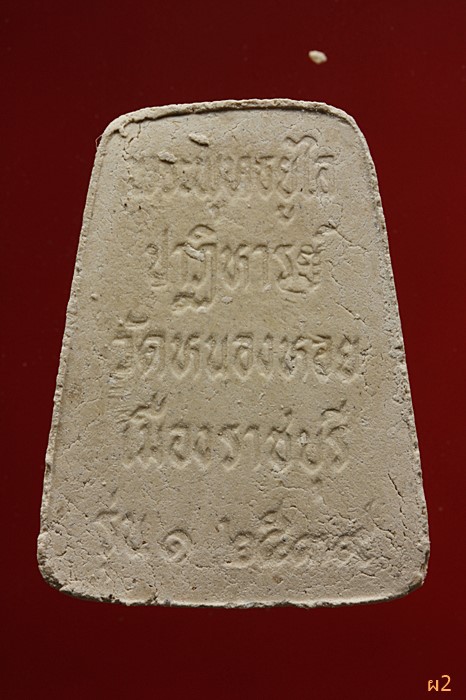 พระพุทธยู่ไล
ปาฏิหารย์
วัดหนองหอย
เมืองราชบุรี
รุ่น ๑ ๒๕๓๙
ผ2